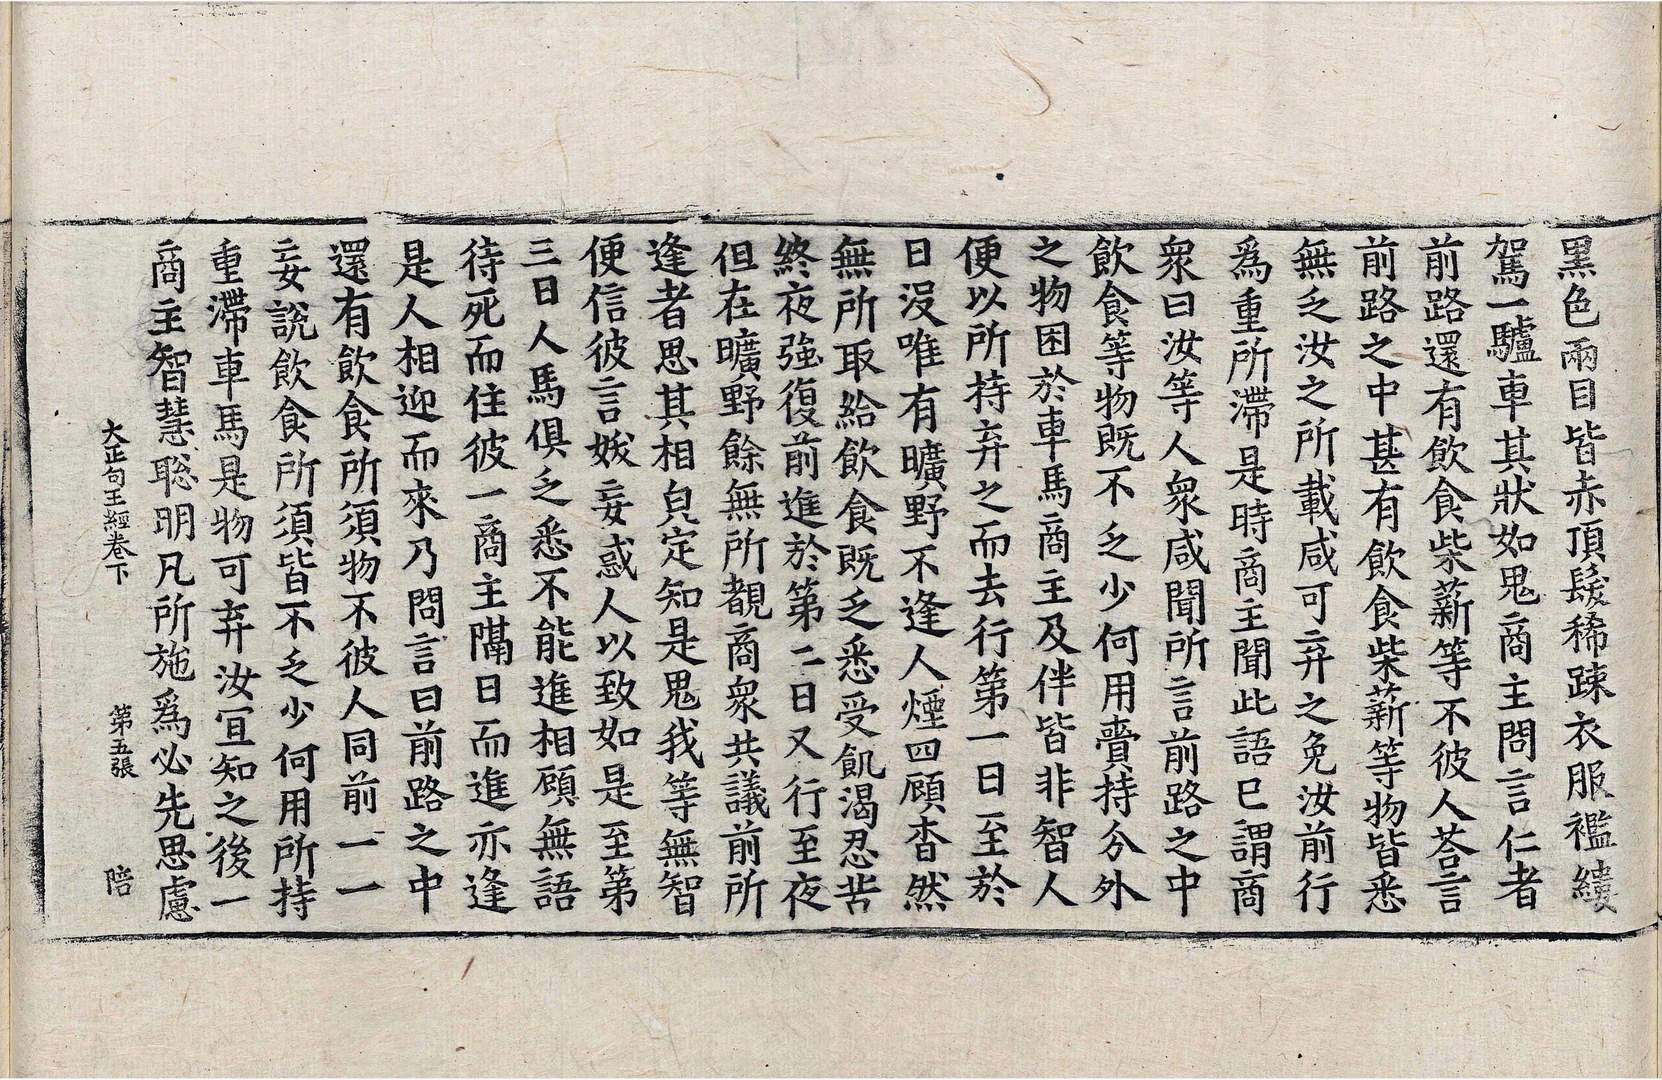 黒色兩目皆赤頂髮稀踈衣服襤縷
駕一驢車其狀如鬼商主問言仁者
前路還有飲食柴薪等不彼人荅言
前路之中甚有飲食柴薪等物皆悉
無乏汝之所載咸可弃之免汝前行
爲重所滯是時商主聞此語已謂商
衆曰汝等人衆咸聞所言前路之中
飲食等物既不乏少何用賷持分外
之物困於車馬商主及伴皆非智人
便以所持弃之而去行第一日至於
日没唯有曠野不逢人煙四顧杳然
無所取給飲食既乏悉受飢渴忍苦
終夜強復前進於第二日又行至夜
但在曠野餘無所覩商衆共議前所
逢者思其相皃定知是鬼我等無智
便信彼言娞妄惑人以致如是至第
三日人馬俱乏悉不能進相顧無語
待死而住彼一商主隔日而進亦逢
是人相迎而來乃問言曰前路之中
還有飲食所須物不彼人同前一一
妄說飲食所須皆不乏少何用所持
重滯車馬是物可弃汝宜知之後一
商主智慧聡明凡所施爲必先思慮
大正句王經卷下 第五張 陪